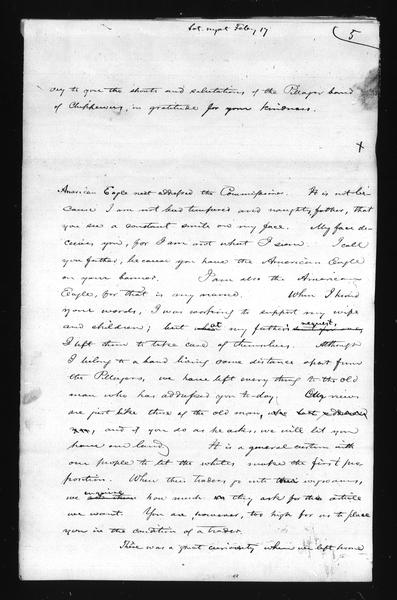 Sat. night Feby 17
5
ory to give the shouts and salutations of the Pillager band
of Chippewas, in gratitude for your kindness.
x
American Eagle next addressed the Commissioner. It is not be-
cause I am not bad tempered and naughty, father, that
you see a constant smile on my face. My face de-
ceives you, for I am not what I seem. I call
you father, because you have the American Eagle
on your banner. I am also the American
Eagle, for that is my name. When I heard
your words, I was working to support my wife
and children; but at my father's request,
I left them to take care of themselves. Although
I belong to a band living some distance apart from
the Pillagers, we have left everything to the old
man who has addressed you to-day. Our views
are just like those of the old man,
and if you do as he asks, we will let you
have our land. It is a general custom with
our people to let the whites make the first pro
position. When the traders go into wigwams,
we enquire how much they ask for the article
we want. You are, however, too high for us to place
you in the condition of a trader.
There was a great curiosity when we left home